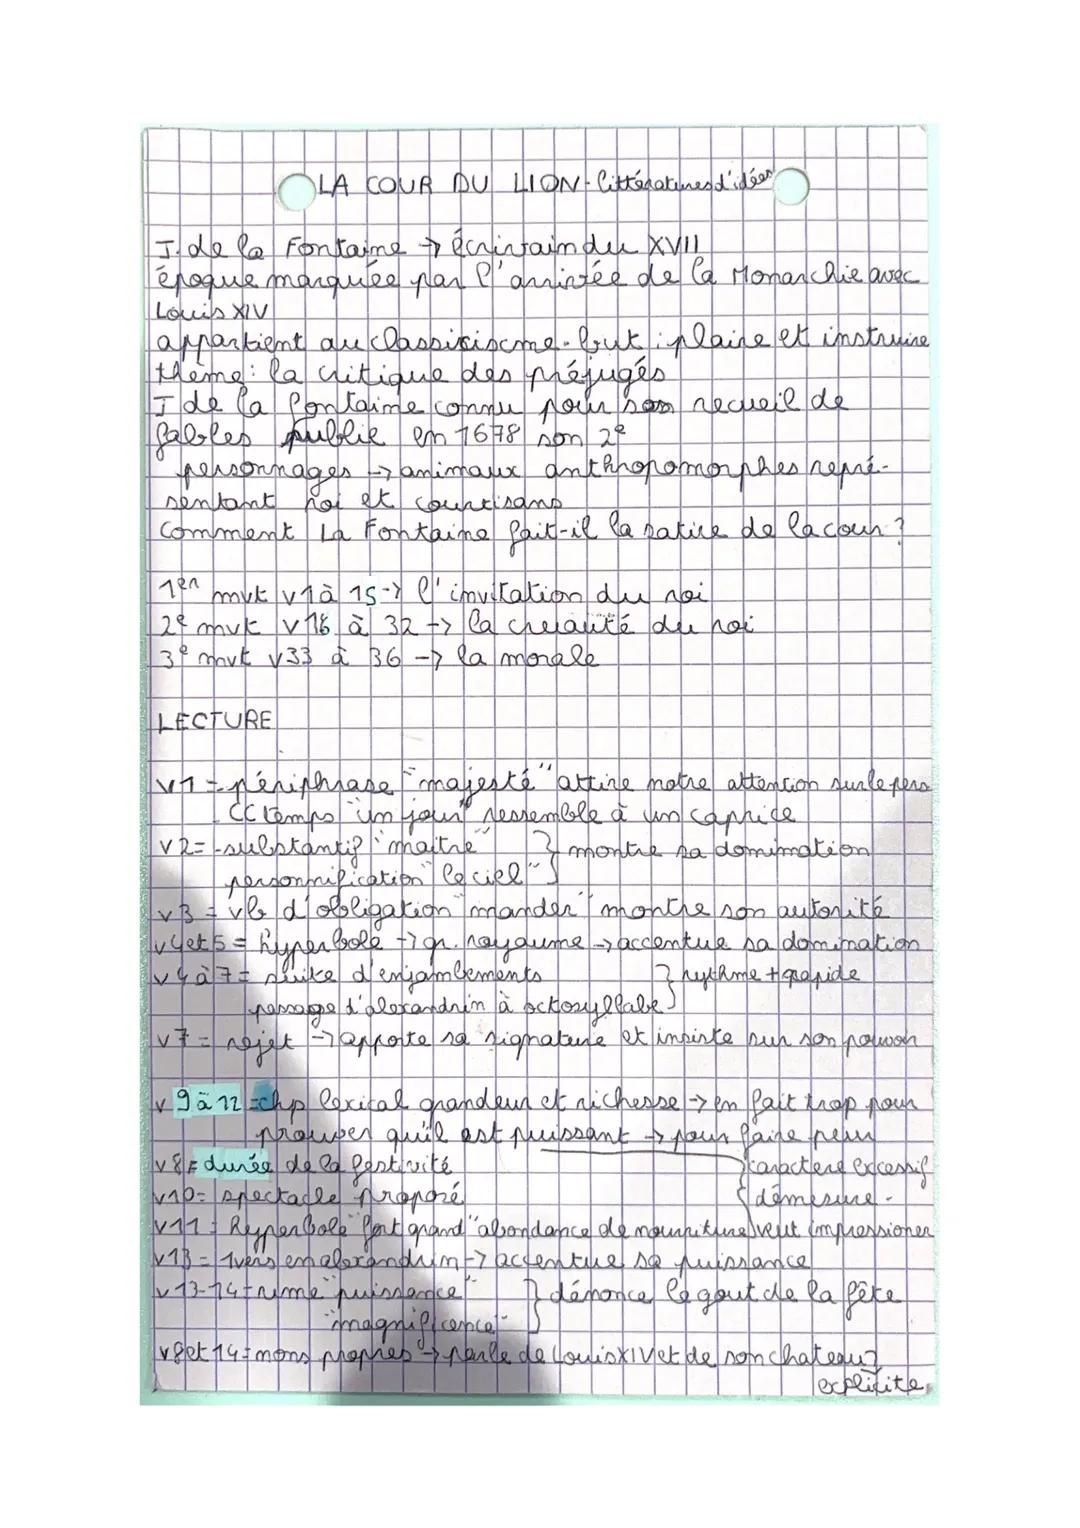 LA COUR DU LION - littératures d'idées
J. de la Fontaine → écrivain du XVII
époque marquée par l'arrivée de la Monarchie avec
Louis XIV
appartient au classicisme. but : plaire et instruire
thème : la critique des préjugés
J de la fontaine connu pour son recueil de
fables publie en 1678 son 2e
personnages → animaux anthropomorphes repré-
sentant roi et courtisans
comment La Fontaine fait-il la satire de la cour ?
1er mvt v1 à 15 → l'invitation du roi
2e mvt v16 à 32 → la cruauté du roi
3e mvt v33 à 36 → la morale
LECTURE
v1 = - périphrase "majesté" attire notre attention sur le pers
- CC temps "un jour" ressemble à un caprice
v2 = - substantif "maître" } montre sa domination
personnification "le ciel"
v3 = vb d'obligation "mander" montre son autorité
v4 et 5 = hyperbole → gr. royaume → accentue sa domination
v4 à 7 = suite d'enjambements } rythme + rapide
passage d'alexandrin à octosyllabe
v7 = rejet → apporte sa signature et insiste sur son pouvoir
v 9 à 12 = chp lexical grandeur et richesse → en fait trop pour
prouver qu'il est puissant → pour faire peur
v8 = durée de la festivité } caractere excessif
v10 = spectacle proposé démesure -
v11 = Hyperbole "fort grand" abondance de nourriture veut impressioner
v13 = 1 vers en alexandrin → accentue sa puissance
v 13-14 = rime "puissance" } dénonce le gout de la fête
"magnificence"
v8 et 14 = "mons propres" → parle de Louis XIV et de son chateau
explicite